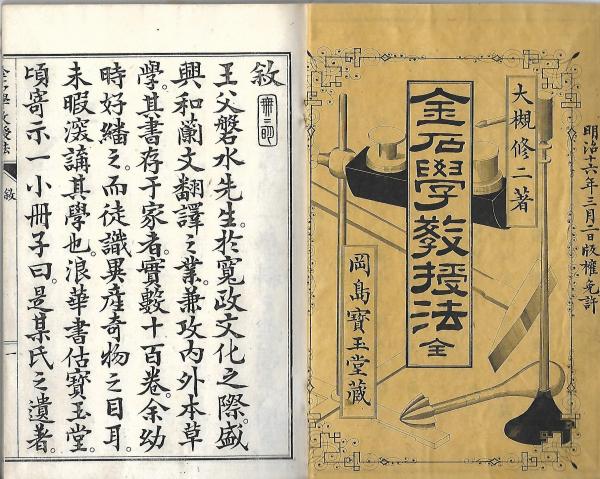 明治十六年三月二日版權免許
大槻修二著
金石學敎授法 全
岡島寶玉堂藏
敘
王父磐水先生。於寬政文化之際。盛
興和蘭文翻譯之業。兼攻內外本草
學。其書存于家者。實數十百卷。余幼
時好繙之。而徒識異產奇物之目耳。
未暇深講其學也。浪華書估寶玉堂。
頃寄示一小冊子曰。是某氏之遺著。
敘
一